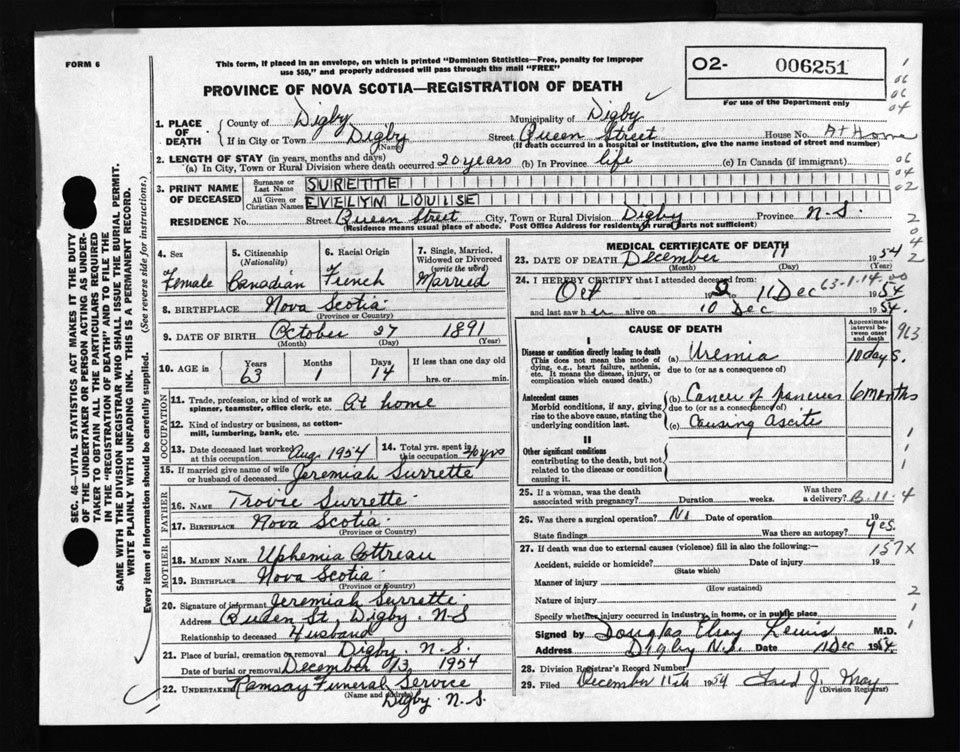 FORM 6
This form, if placed in an envelope, on which is printed "Dominion Statistics—Free, penalty for improper
use $50," and properly addressed will pass through the mail "FREE"
PROVINCE OF NOVA SCOTIA—REGISTRATION OF DEATH
02- 006251
For use of the Department only
1. PLACE OF DEATH
County of Digby Municipality of Digby
If in City or Town Digby Street Queen Street House No. At Home
(Name) (If death occurred in a hospital or Institution, give the name instead of street and number)
2. LENGTH OF STAY (in years, months and days)
(a) In City, Town or Rural Division where death occurred 20 years (b) In Province life (c) In Canada (if immigrant)
3. PRINT NAME OF DECEASED
Surname or Last Name SURETTE
All Given or Christian Names EVELYN LOUISE
RESIDENCE No. Street Queen Street City, Town or Rural Division Digby Province N.S.
(Residence means usual place of abode. Post Office Address for residents in rural parts not sufficient)
4. Sex Female
5. Citizenship (Nationality) Canadian
6. Racial Origin French
7. Single, Married, Widowed or Divorced (write the word) Married
8. BIRTHPLACE Nova Scotia
(Province or Country)
9. DATE OF BIRTH October 27 1891
(Month) (Day) (Year)
10. AGE in Years 63 Months 1 Days 14 If less than one day old hrs. or min.
OCCUPATION
11. Trade, profession, or kind of work as spinner, teamster, office clerk, etc. At home
12. Kind of industry or business, as cotton-mill, lumbering, bank, etc.
13. Date deceased last worked at this occupation Aug 1954
14. Total yrs. spent in this occupation yrs
15. If married give name of wife or husband of deceased Jeremiah Surrette
FATHER
16. NAME Trovie Surrette
17. BIRTHPLACE Nova Scotia
(Province or Country)
MOTHER
18. MAIDEN NAME Uphemia Cottreau
19. BIRTHPLACE Nova Scotia
(Province or Country)
20. Signature of informant Jeremiah Surrette
Address Queen St, Digby. N-S
Relationship to deceased Husband
21. Place of burial, cremation or removal Digby. N.S.
Date of burial or removal December 13 1954
22. Undertaker Ramsay Funeral Service
(Name and address) Digby. N.S.
MEDICAL CERTIFICATE OF DEATH
23. DATE OF DEATH December 11 1954
(Month) (Day) (Year)
24. I HEREBY CERTIFY that I attended deceased from:
Oct 19 to 11 Dec 1954
and last saw her alive on 10 Dec 1954.
63-1-14
CAUSE OF DEATH
Approximate interval between onset and death
I
Disease or condition directly leading to death (a) Uremia 10 days.
(This does not mean the mode of dying, e.g., heart failure, asthenia, etc. It means the disease, injury, or complication which caused death.)
due to (or as a consequence of)
Antecedent causes (b) Cancer of Pancreas 6 months
Morbid conditions, if any, giving rise to the above cause, stating the underlying condition last.
due to (or as a consequence of)
(c) Causing Ascite
II
Other significant conditions
contributing to the death, but not related to the disease or condition causing it.
25. If a woman, was the death associated with pregnancy? Duration weeks. Was there a delivery? B-11-4
26. Was there a surgical operation? No Date of operation 19
State findings Was there an autopsy? yes.
27. If death was due to external causes (violence) fill in also the following:— 157X
Accident, suicide or homicide? Date of injury 19
(State which)
Manner of injury
(How sustained)
Nature of injury
Specify whether injury occurred in industry, in home, or in public place
Signed by Douglas Lewis M.D.
Address Digby N.S. Date 11 Dec 1954
28. Division Registrar's Record Number
29. Filed December 11th 1954 J. May
(Division Registrar)
SEC. 46—VITAL STATISTICS ACT MAKES IT THE DUTY
OF THE UNDERTAKER OR PERSON ACTING AS UNDER-
TAKER TO OBTAIN ALL THE PARTICULARS REQUIRED
IN THE "REGISTRATION OF DEATH" AND TO FILE THE
SAME WITH THE DIVISION REGISTRAR WHO SHALL ISSUE THE BURIAL PERMIT.
WRITE PLAINLY WITH UNFADING INK. THIS IS A PERMANENT RECORD.
Every item of information should be carefully supplied. (See reverse side for instructions.)
1
06
06
04
06
04
02
2
0
4
2
963
1
1
1
2
1
1